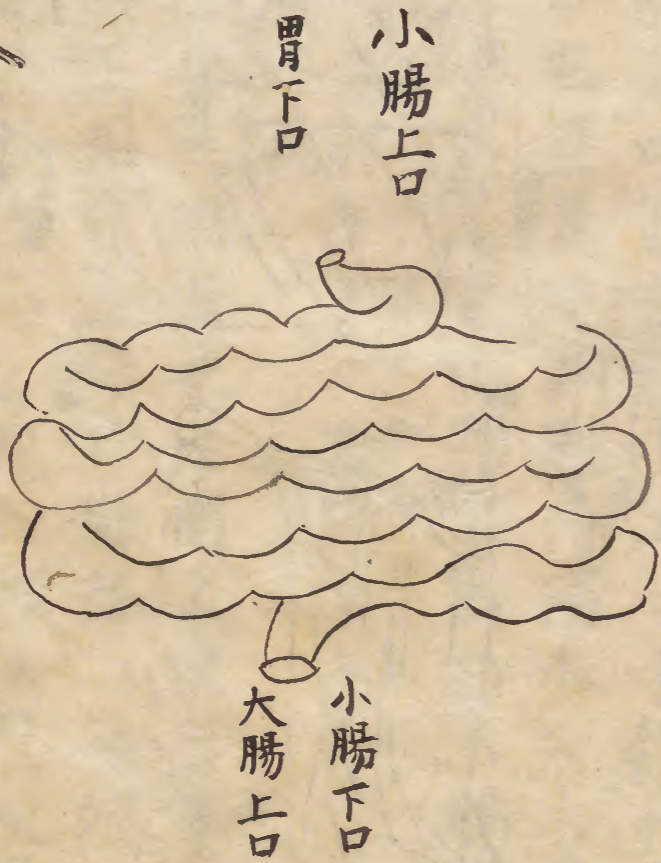 小腸上口
胃下口
小腸下口
大腸上口